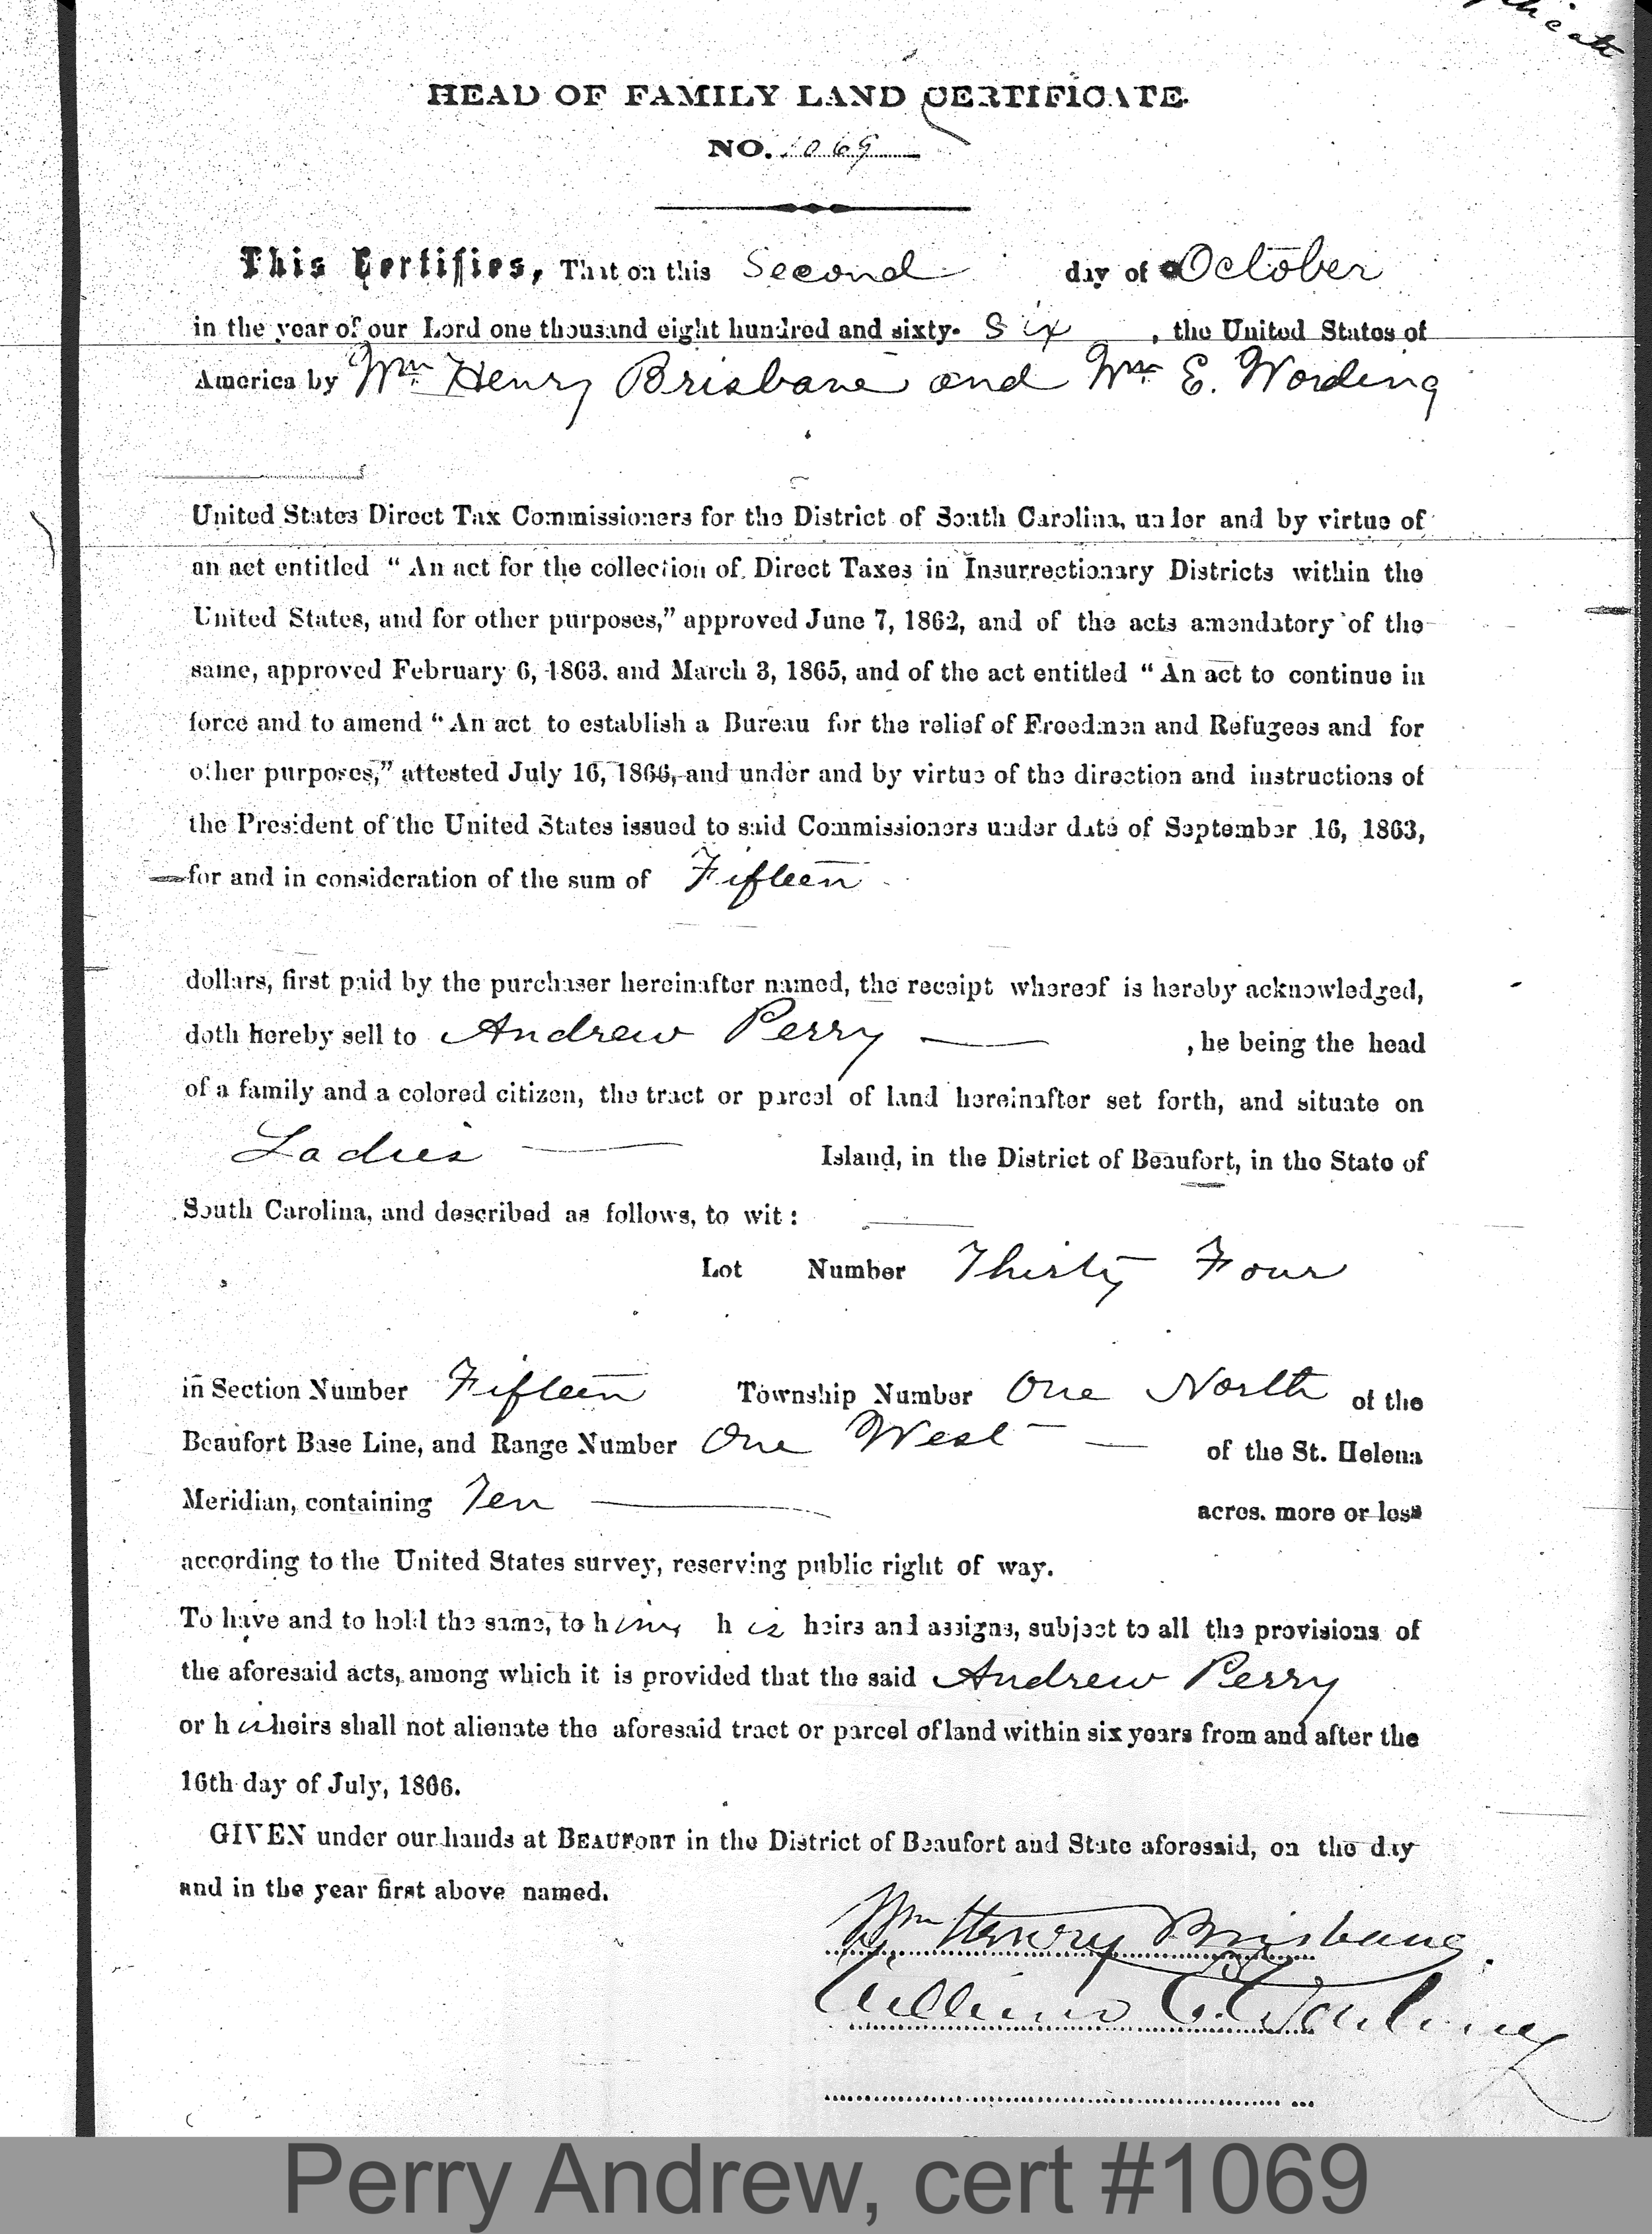 HEAD OF FAMILY LAND CERTIFICATE.
NO. 1069
This Certifies, That on this Second day of October
in the year of our Lord one thousand eight hundred and sixty- Six , the United States of
America by Wm Henry Brisbane and Wm E. Wording
United States Direct Tax Commissioners for the District of South Carolina, under and by virtue of
an act entitled “ An act for the collection of Direct Taxes in Insurrectionary Districts within the
United States, and for other purposes,” approved June 7, 1862, and of the acts amendatory of the
same, approved February 6, 1863. and March 3, 1865, and of the act entitled “ An act to continue in
force and to amend “ An act to establish a Bureau for the relief of Freedmen and Refugees and for
other purposes,” attested July 16, 1866, and under and by virtue of the direction and instructions of
the President of the United States issued to said Commissioners under date of September 16, 1863,
for and in consideration of the sum of Fifteen
dollars, first paid by the purchaser hereinafter named, the receipt whereof is hereby acknowledged,
doth hereby sell to Andrew Perry — , he being the head
of a family and a colored citizen, the tract or parcel of land hereinafter set forth, and situate on
Ladies — Island, in the District of Beaufort, in the State of
South Carolina, and described as follows, to wit :
Lot Number Thirty Four
in Section Number Fifteen Township Number One North of the
Beaufort Base Line, and Range Number One West — of the St. Helena
Meridian, containing Ten — acres. more or less
according to the United States survey, reserving public right of way.
To have and to hold the same, to him, his heirs and assigns, subject to all the provisions of
the aforesaid acts, among which it is provided that the said Andrew Perry
or his heirs shall not alienate the aforesaid tract or parcel of land within six years from and after the
16th day of July, 1866.
GIVEN under our hands at BEAUFORT in the District of Beaufort and State aforesaid, on the day
and in the year first above named.
Wm Henry Brisbane
William E. Wording
Perry Andrew, cert #1069